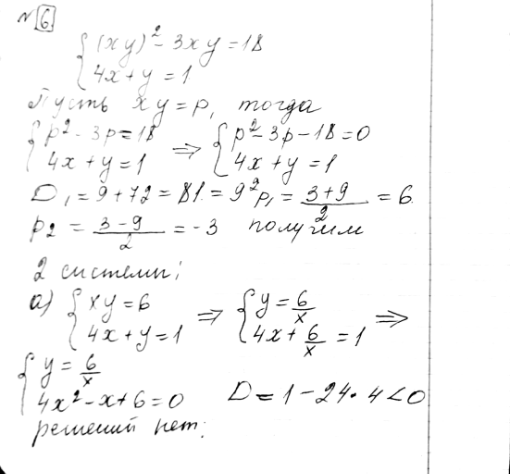 № 6.
{(xy)² - 3xy = 18
{4x + y = 1
Пусть xy = p, тогда
{p² - 3p = 18 ⇒ {p² - 3p - 18 = 0
{4x + y = 1 {4x + y = 1
D₁ = 9 + 72 = 81 = 9² p₁ = (3+9)/2 = 6
p₂ = (3-9)/2 = -3 получим
2 системы;
а) {xy = 6 ⇒ {y = 6/x
{4x + y = 1 {4x + 6/x = 1 ⇒
{y = 6/x
{4x² - x + 6 = 0 D = 1 - 24·4 < 0
решений нет.